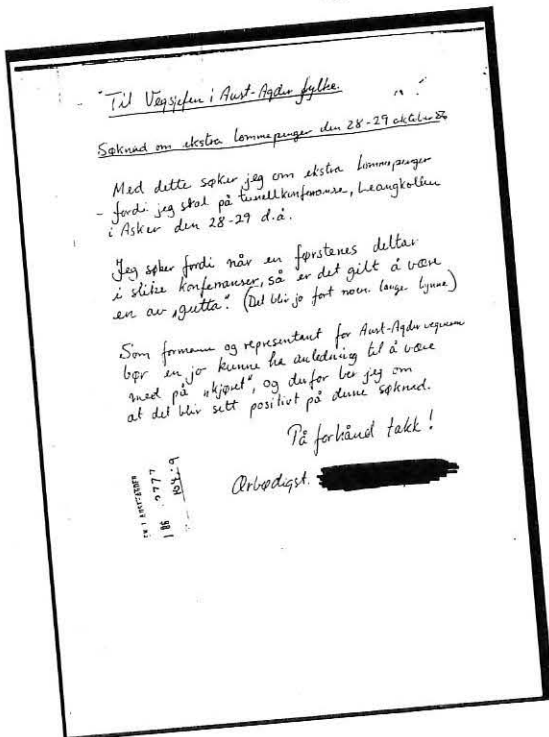 Til Vegsjefen i Aust-Agder fylke.
Søknad om ekstra lommepenger den 28-29 oktober 86
Med dette søker jeg om ekstra lommepenger
- fordi jeg skal på tunellkonferanse, Leangkollen
i Asker den 28-29 d.å.
Jeg søker fordi når en førstenes deltar
i slike konferanser, så er det gilt å være
en av „gutta". (Det blir jo fort noen lange lynne)
Som formann og representant for Aust-Agder vegvesen
bør en jo kunne ha anledning til å være
med på „kjøret", og derfor ber jeg om
at det blir sett positivt på denne søknad.
På forhånd takk!
Ærbødigst.
86 2777